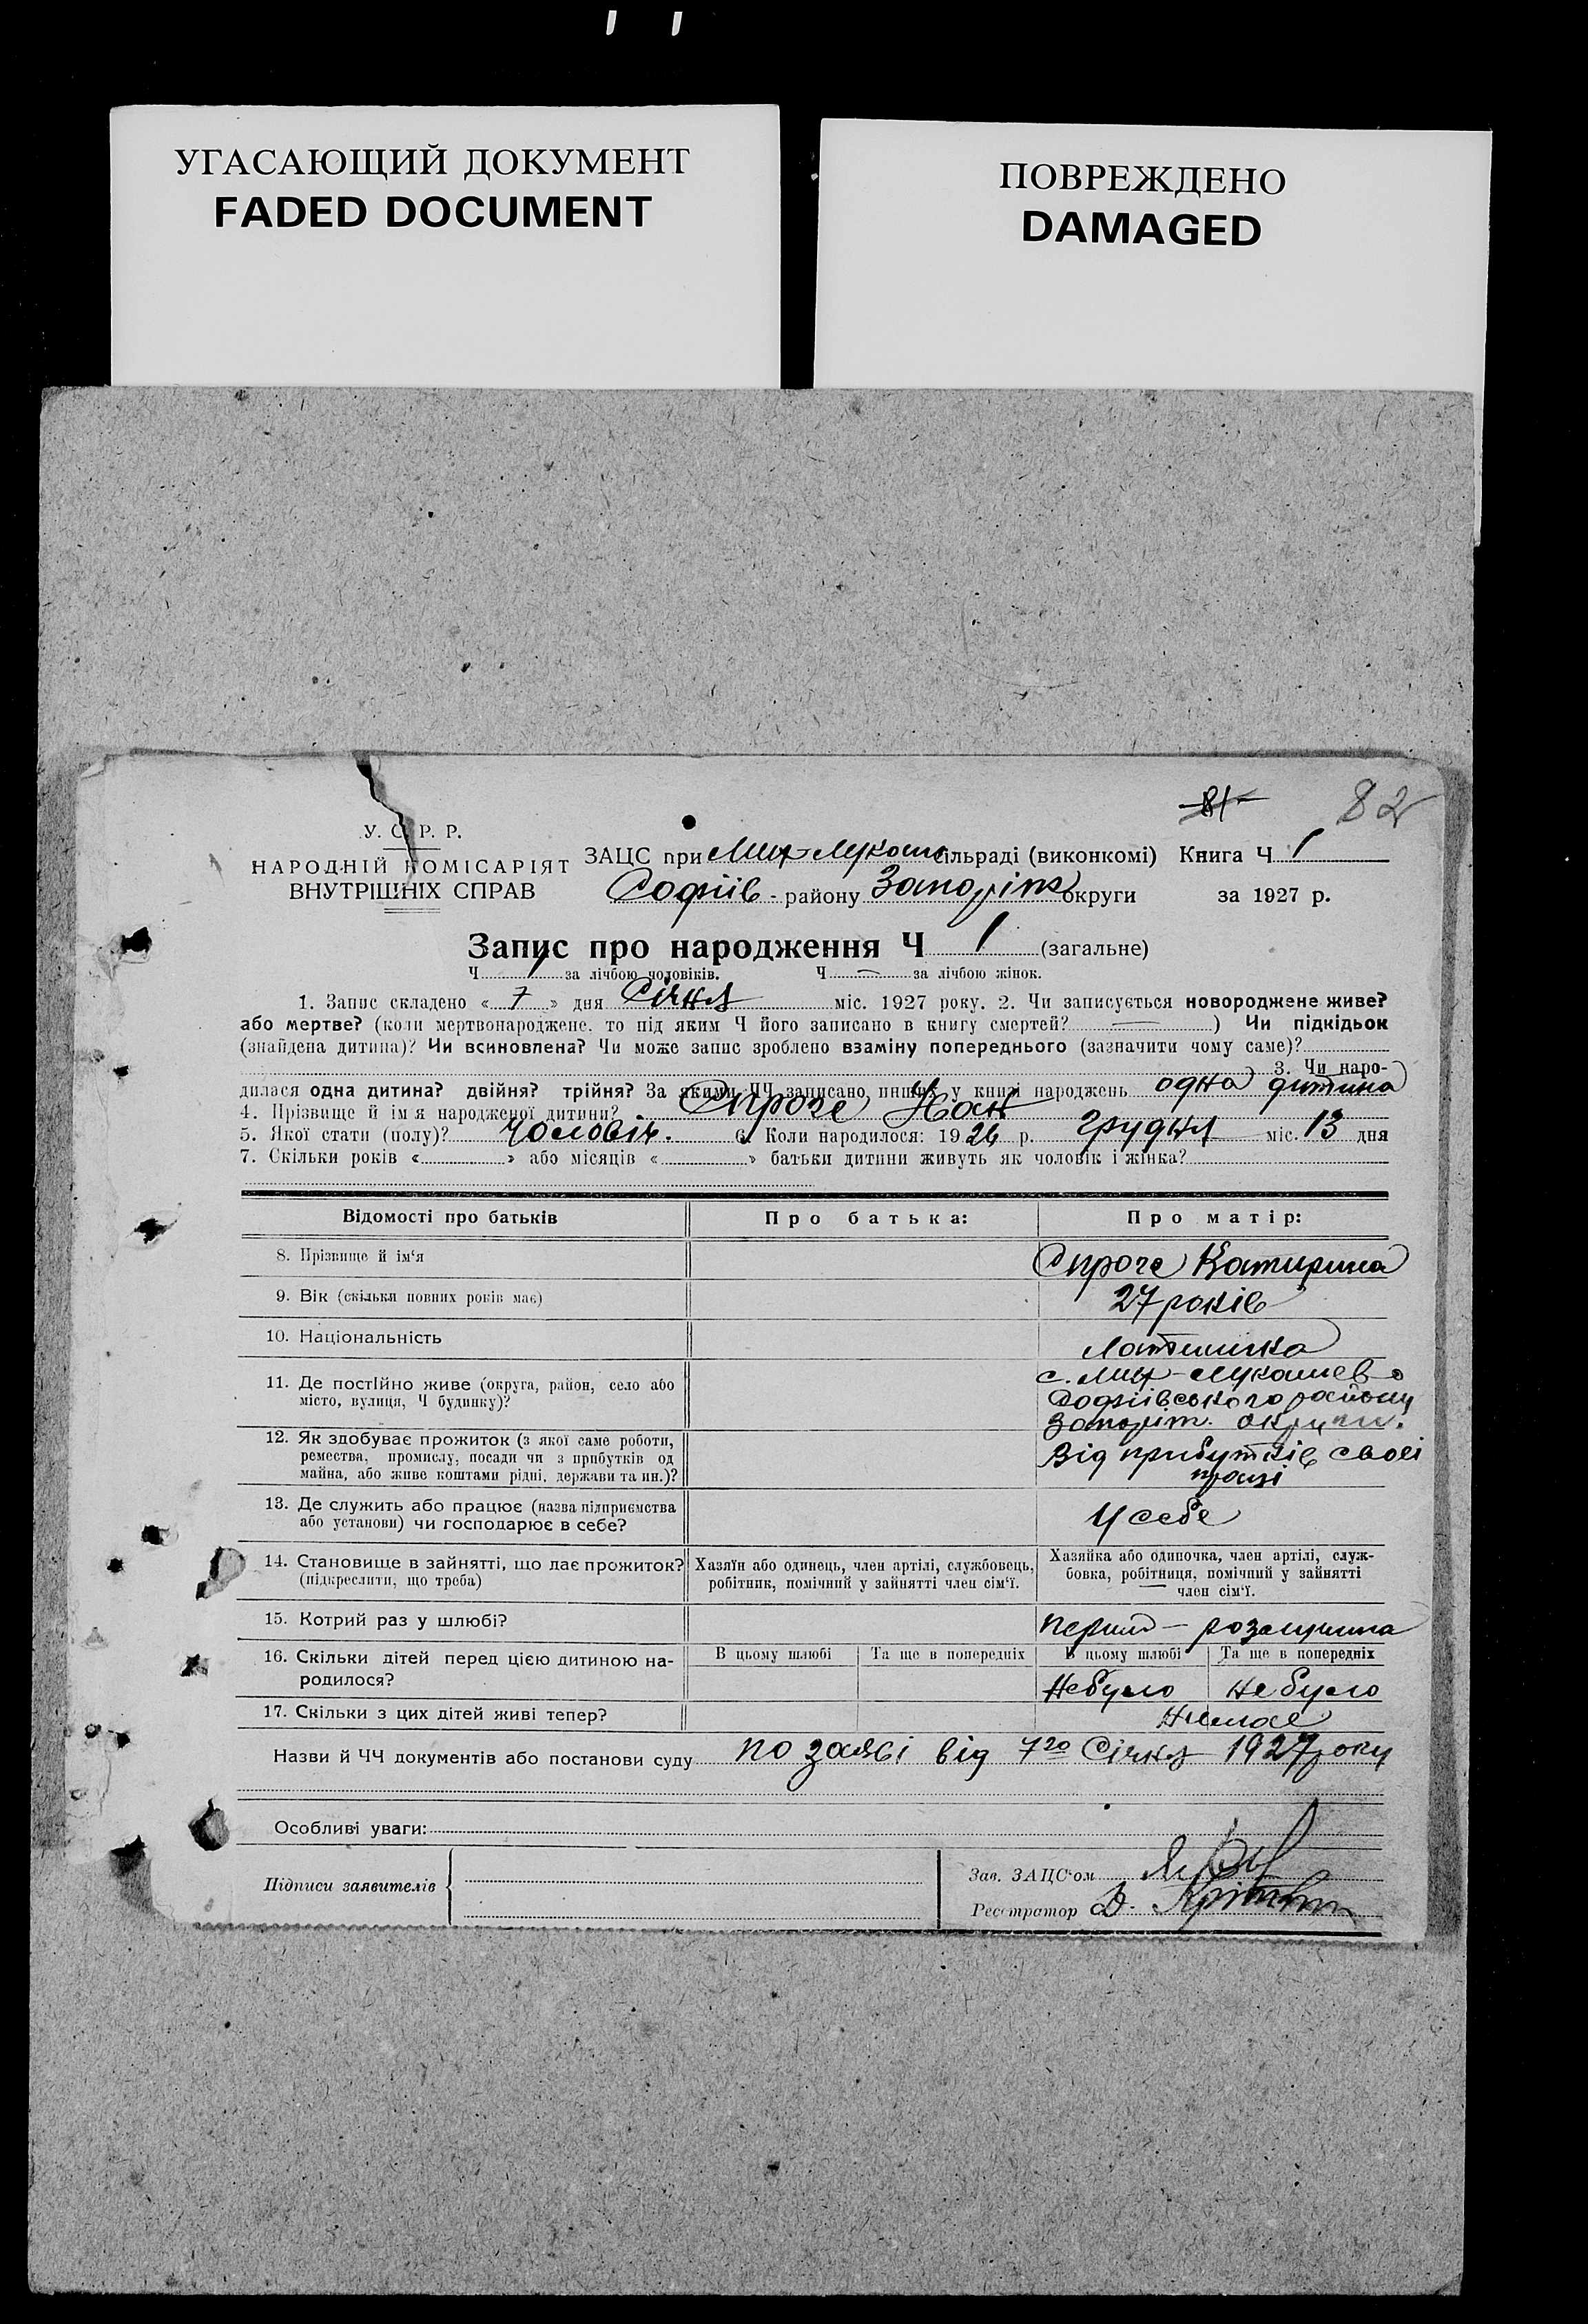 УГАСАЮЩИЙ ДОКУМЕНТ
FADED DOCUMENT
ПОВРЕЖДЕНО
DAMAGED
81
82
У. С. Р. Р.
НАРОДНІЙ КОМІСАРІЯТ
ВНУТРІШНІХ СПРАВ
ЗАЦС при Мих-Лукаш сільраді (виконкомі) Книга Ч 1
Софіїв - району Запоріж округи за 1927 р.
Запис про народження Ч 1 (загальне)
Ч 1 за лічбою чоловіків. Ч — за лічбою жінок.
1. Запис складено « 7 » дня Січня міс. 1927 року. 2. Чи записується новороджене живе?
або мертве? (коли мертвонароджене, то під яким Ч його записано в книгу смертей? — ) Чи підкідьок
(знайдена дитина)? Чи всиновлена? Чи може запис зроблено взаміну попереднього (зазначити чому саме)?
3. Чи наро-
дилася одна дитина? двійня? трійня? За якими ЧЧ записано инших у книзі народжень одна дитина
4. Прізвище й ім'я народженої дитини? Спроге
5. Якої стати (полу)? Чоловіч. 6. Коли народилося: 1926 р. Грудня міс. 13 дня
7. Скільки років « » або місяців « » батьки дитини живуть як чоловік і жінка?
Відомості про батьків Про батька: Про матір:
8. Прізвище й ім'я Спроге Катирина
9. Вік (скільки повних років має) 27 років
10. Національність Латишка
11. Де постійно живе (округа, район, село або
місто, вулиця, Ч будинку)?
с. Мих-Лукашево
Софіївського району
Запоріж. округи.
12. Як здобуває прожиток (з якої саме роботи,
ремества, промислу, посади чи з прибутків од
майна, або живе коштами рідні, держави та ин.)?
Від прибутків своєї
праці
13. Де служить або працює (назва підприємства
або установи) чи господарює в себе?
У себе
14. Становище в зайнятті, що дає прожиток?
(підкреслити, що треба)
Хазяїн або одинець, член артілі, службовець,
робітник, помічний у зайнятті член сім'ї.
Хазяйка або одиночка, член артілі, служ-
бовка, робітниця, помічний у зайнятті
член сім'ї.
15. Котрий раз у шлюбі?
16. Скільки дітей перед цією дитиною на-
родилося?
В цьому шлюбі Та ще в попередніх В цьому шлюбі Та ще в попередніх
Не було Не було
17. Скільки з цих дітей живі тепер? Немає
Назви й ЧЧ документів або постанови суду по заяві від 7го Січня 1927 року
Особливі уваги:
Підписи заявителів
Зав. ЗАЦС'ом
Реєстратор